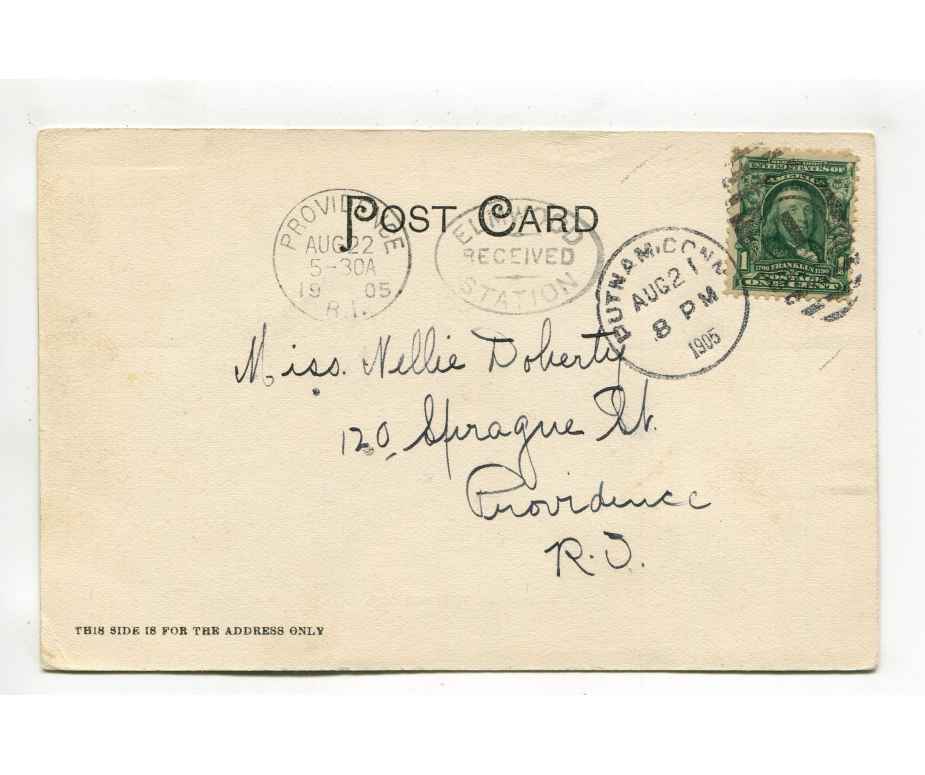 POST CARD
PROVIDENCE
AUG 22
5-30A
19 05
R.I.
ELMWOOD
RECEIVED
STATION
PUTNAM, CONN.
AUG 21
8 PM
1905
UNITED STATES OF
AMERICA
1706 FRANKLIN 1790
POSTAGE
1 1
ONE CENT
Miss. Nellie Doherty
120, Sprague St.
Providence
R.I.
THIS SIDE IS FOR THE ADDRESS ONLY